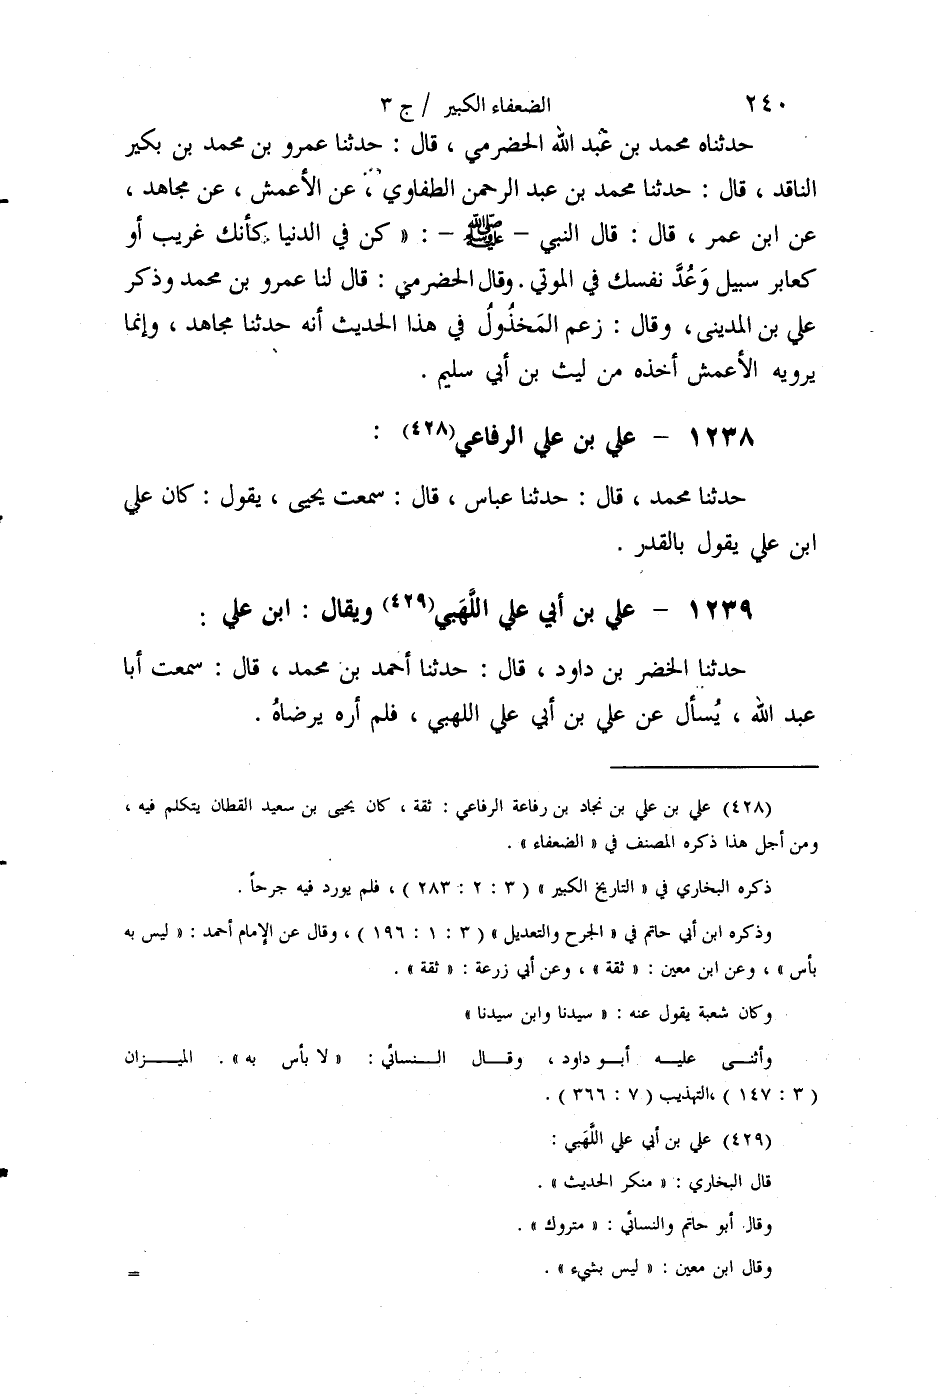 ٢٤٠ الضعفاء الكبير / ج ٣
حدثناه محمد بن عبد الله الحضرمي ، قال : حدثنا عمرو بن محمد بن بكير
الناقد ، قال : حدثنا محمد بن عبد الرحمن الطفاوي ، عن الأعمش ، عن مجاهد ،
عن ابن عمر ، قال : قال النبي – ﷺ – : « كن في الدنيا كأنك غريب أو
كعابر سبيل وَعُدَّ نفسك في الموتي . وقال الحضرمي : قال لنا عمرو بن محمد وذكر
علي بن المدينى ، وقال : زعم المَخذُولُ في هذا الحديث أنه حدثنا مجاهد ، وإنما
يرويه الأعمش أخذه من ليث بن أبي سليم .
١٢٣٨ – علي بن علي الرفاعي(٤٢٨) :
حدثنا محمد ، قال : حدثنا عباس ، قال : سمعت يحيى ، يقول : كان علي
ابن علي يقول بالقدر .
١٢٣٩ – علي بن أبي علي اللَّهَبي(٤٢٩) ويقال : ابن علي :
حدثنا الخضر بن داود ، قال : حدثنا أحمد بن محمد ، قال : سمعت أبا
عبد الله ، يُسأل عن علي بن أبي علي اللهبي ، فلم أره يرضاهُ .
(٤٢٨) علي بن علي بن نجاد بن رفاعة الرفاعي : ثقة ، كان يحيى بن سعيد القطان يتكلم فيه ،
ومن أجل هذا ذكره المصنف في « الضعفاء » .
ذكره البخاري في « التاريخ الكبير » ( ٣ : ٢ : ٢٨٣ ) ، فلم يورد فيه جرحاً .
وذكره ابن أبي حاتم في « الجرح والتعديل » ( ٣ : ١ : ١٩٦ ) ، وقال عن الإمام أحمد : « ليس به
بأس » ، وعن ابن معين : « ثقة » ، وعن أبي زرعة : « ثقة » .
وكان شعبة يقول عنه : « سيدنا وابن سيدنا »
وأثنــى عليــه أبــو داود ، وقــال النــسائي : « لا بأس به » . الميــزان
( ٣ : ١٤٧ ) ،التهذيب ( ٧ : ٣٦٦ ) .
(٤٢٩) علي بن أبي علي اللَّهَبي :
قال البخاري : « منكر الحديث » .
وقال أبو حاتم والنسائي : « متروك » .
وقال ابن معين : « ليس بشيء » . =